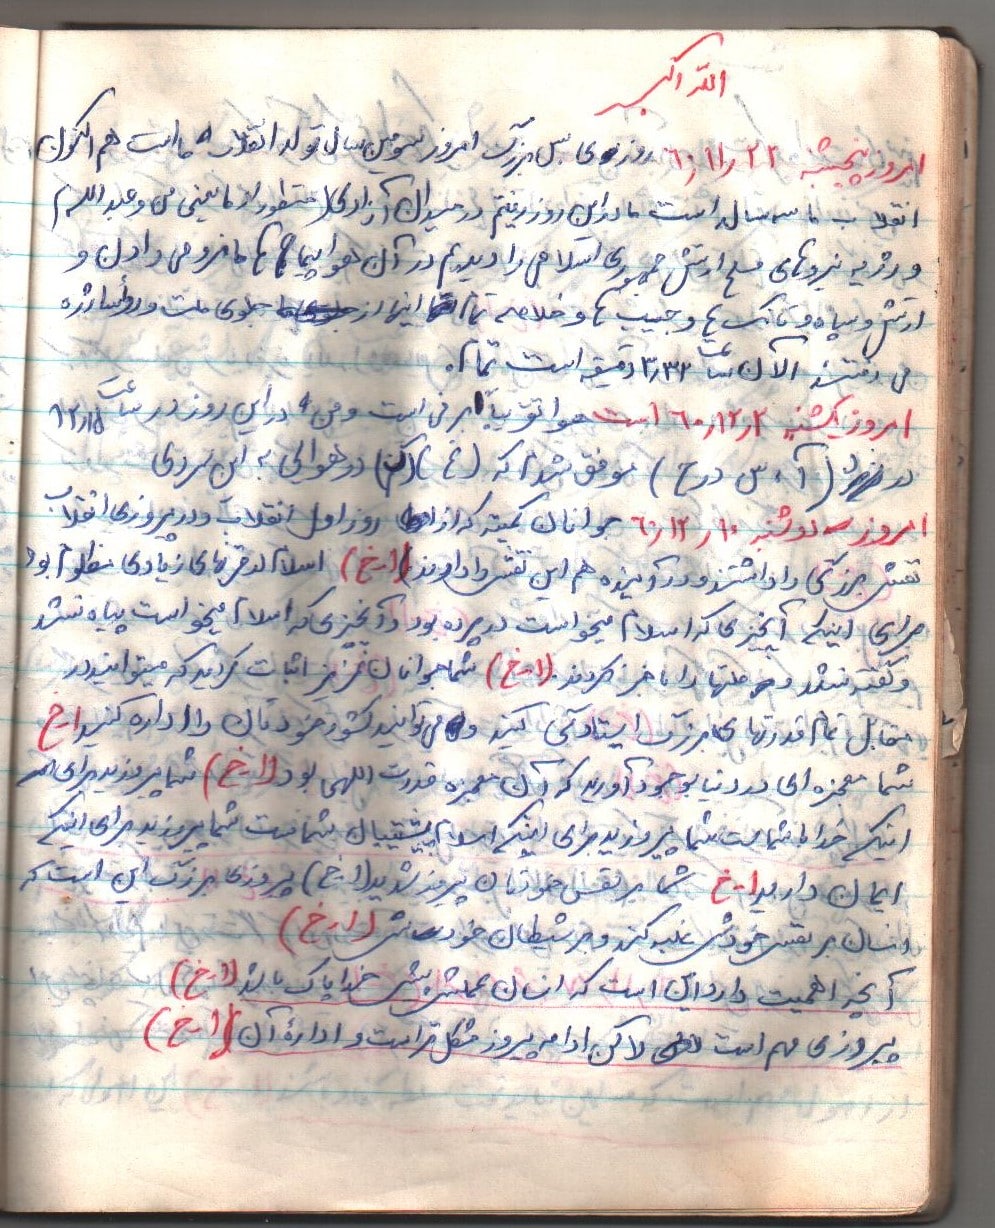 الله اکبر
امروز پنجشنبه ۲۲ر۱۱ر۶۰ روزهای بس بزرگ امروز سومین سال تولد انقلاب ما است هم اکنون
انقلاب ما سه سال است ما در این روز رفتیم در میدان آزادی (منظور از ما یعنی من و عبدالله)
و رژیه نیروهای مسلح ارتش جمهوری اسلامی را دیدیم در آن هواپیماها مانور می دادن و
ارتش و سپاه و تانک ها و جیپ ها و خلاصه تمام اینها از جلوی ملت و رؤسا رژه
می رفتند الآن ساعت ۳٫۳۳ دقیقه است تمام.
امروز یکشنبه ۲ر۱۲ر۶۰ است هوا تقریباً برفی است و من در این روز در ساعت ۱۲٫۱۵
در (آ ، س درح) موفق شدم که در هوای به این سردی
امروز سه دوشنبه ۱۰ر۱۲ر۶۰ جوانان کمیته که از روز اول انقلاب و در پیروزی انقلاب
نقش بزرگی را داشتند و در آینده هم این نقش را دارند (ا-خ) اسلام در قرنهای زیادی مظلوم بود
برای اینکه آنچیزی که اسلام میخواست در پرده بود و آنچیزی که اسلام میخواست پیاه نشد
و گفته نشد و ملتها را با خبر نکردند. (ا-خ) شما جوانان عزیز اثبات کردید که میتوانید در
مقابل تمام قدرتهای بزرگ ایستادگی کنید و می توانید کشور خودتان را اداره کنید ا-خ
شما معجزه ای در دنیا بوجود آورید که آن معجزه قدرت اللهی بود (ا-خ) شما پیروزید برای
اینکه خدا با شماست شما پیروزید برای اینکه اسلام پشتیبان شماست شما پیروزید برای اینکه
ایمان دارید ا-خ شما بر نفس خودتان پیروز شدید (ا-خ) پیروزی بزرگ این است که
انسان بر نفس خودش غلبه کند و بر شیطان خودش (ا-خ)
آنچه اهمیت دارد این است که انسان عملش پیش خدا پاک باشد (ا-خ)
پیروزی مهم است لاکن ادامه پیروز مشکل تر است و ادارهٔ آن (ا-خ)